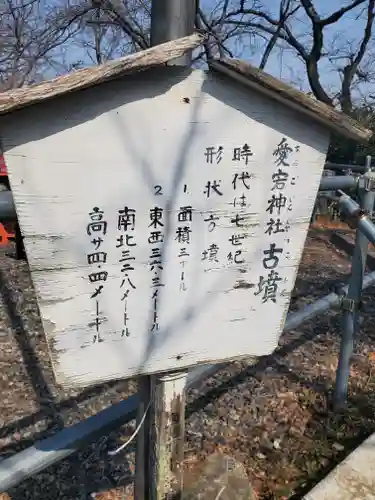 愛宕神社古墳
時代は七世紀
形状方墳
1 面積三アール
2 東西三六・三メートル
南北三三・八メートル
高サ四・四メートル